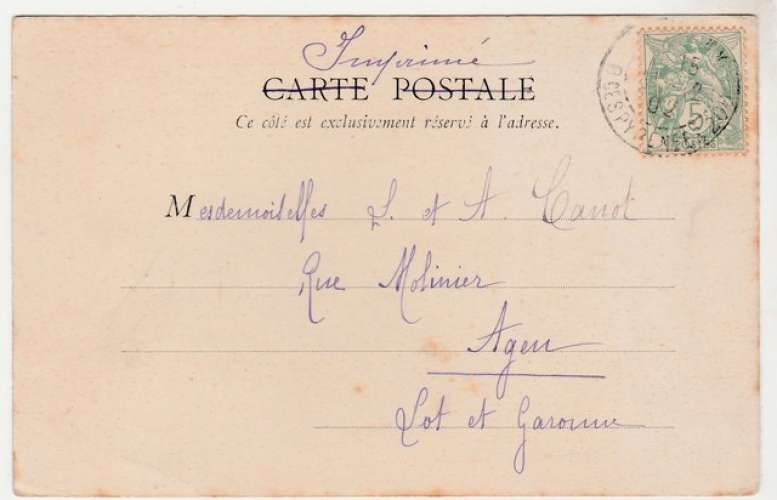 Imprimé
CARTE POSTALE
Ce côté est exclusivement réservé à l'adresse.
Mesdemoiselles L. et A. Canot
Rue Molinier
Agen
Lot et Garonne
5